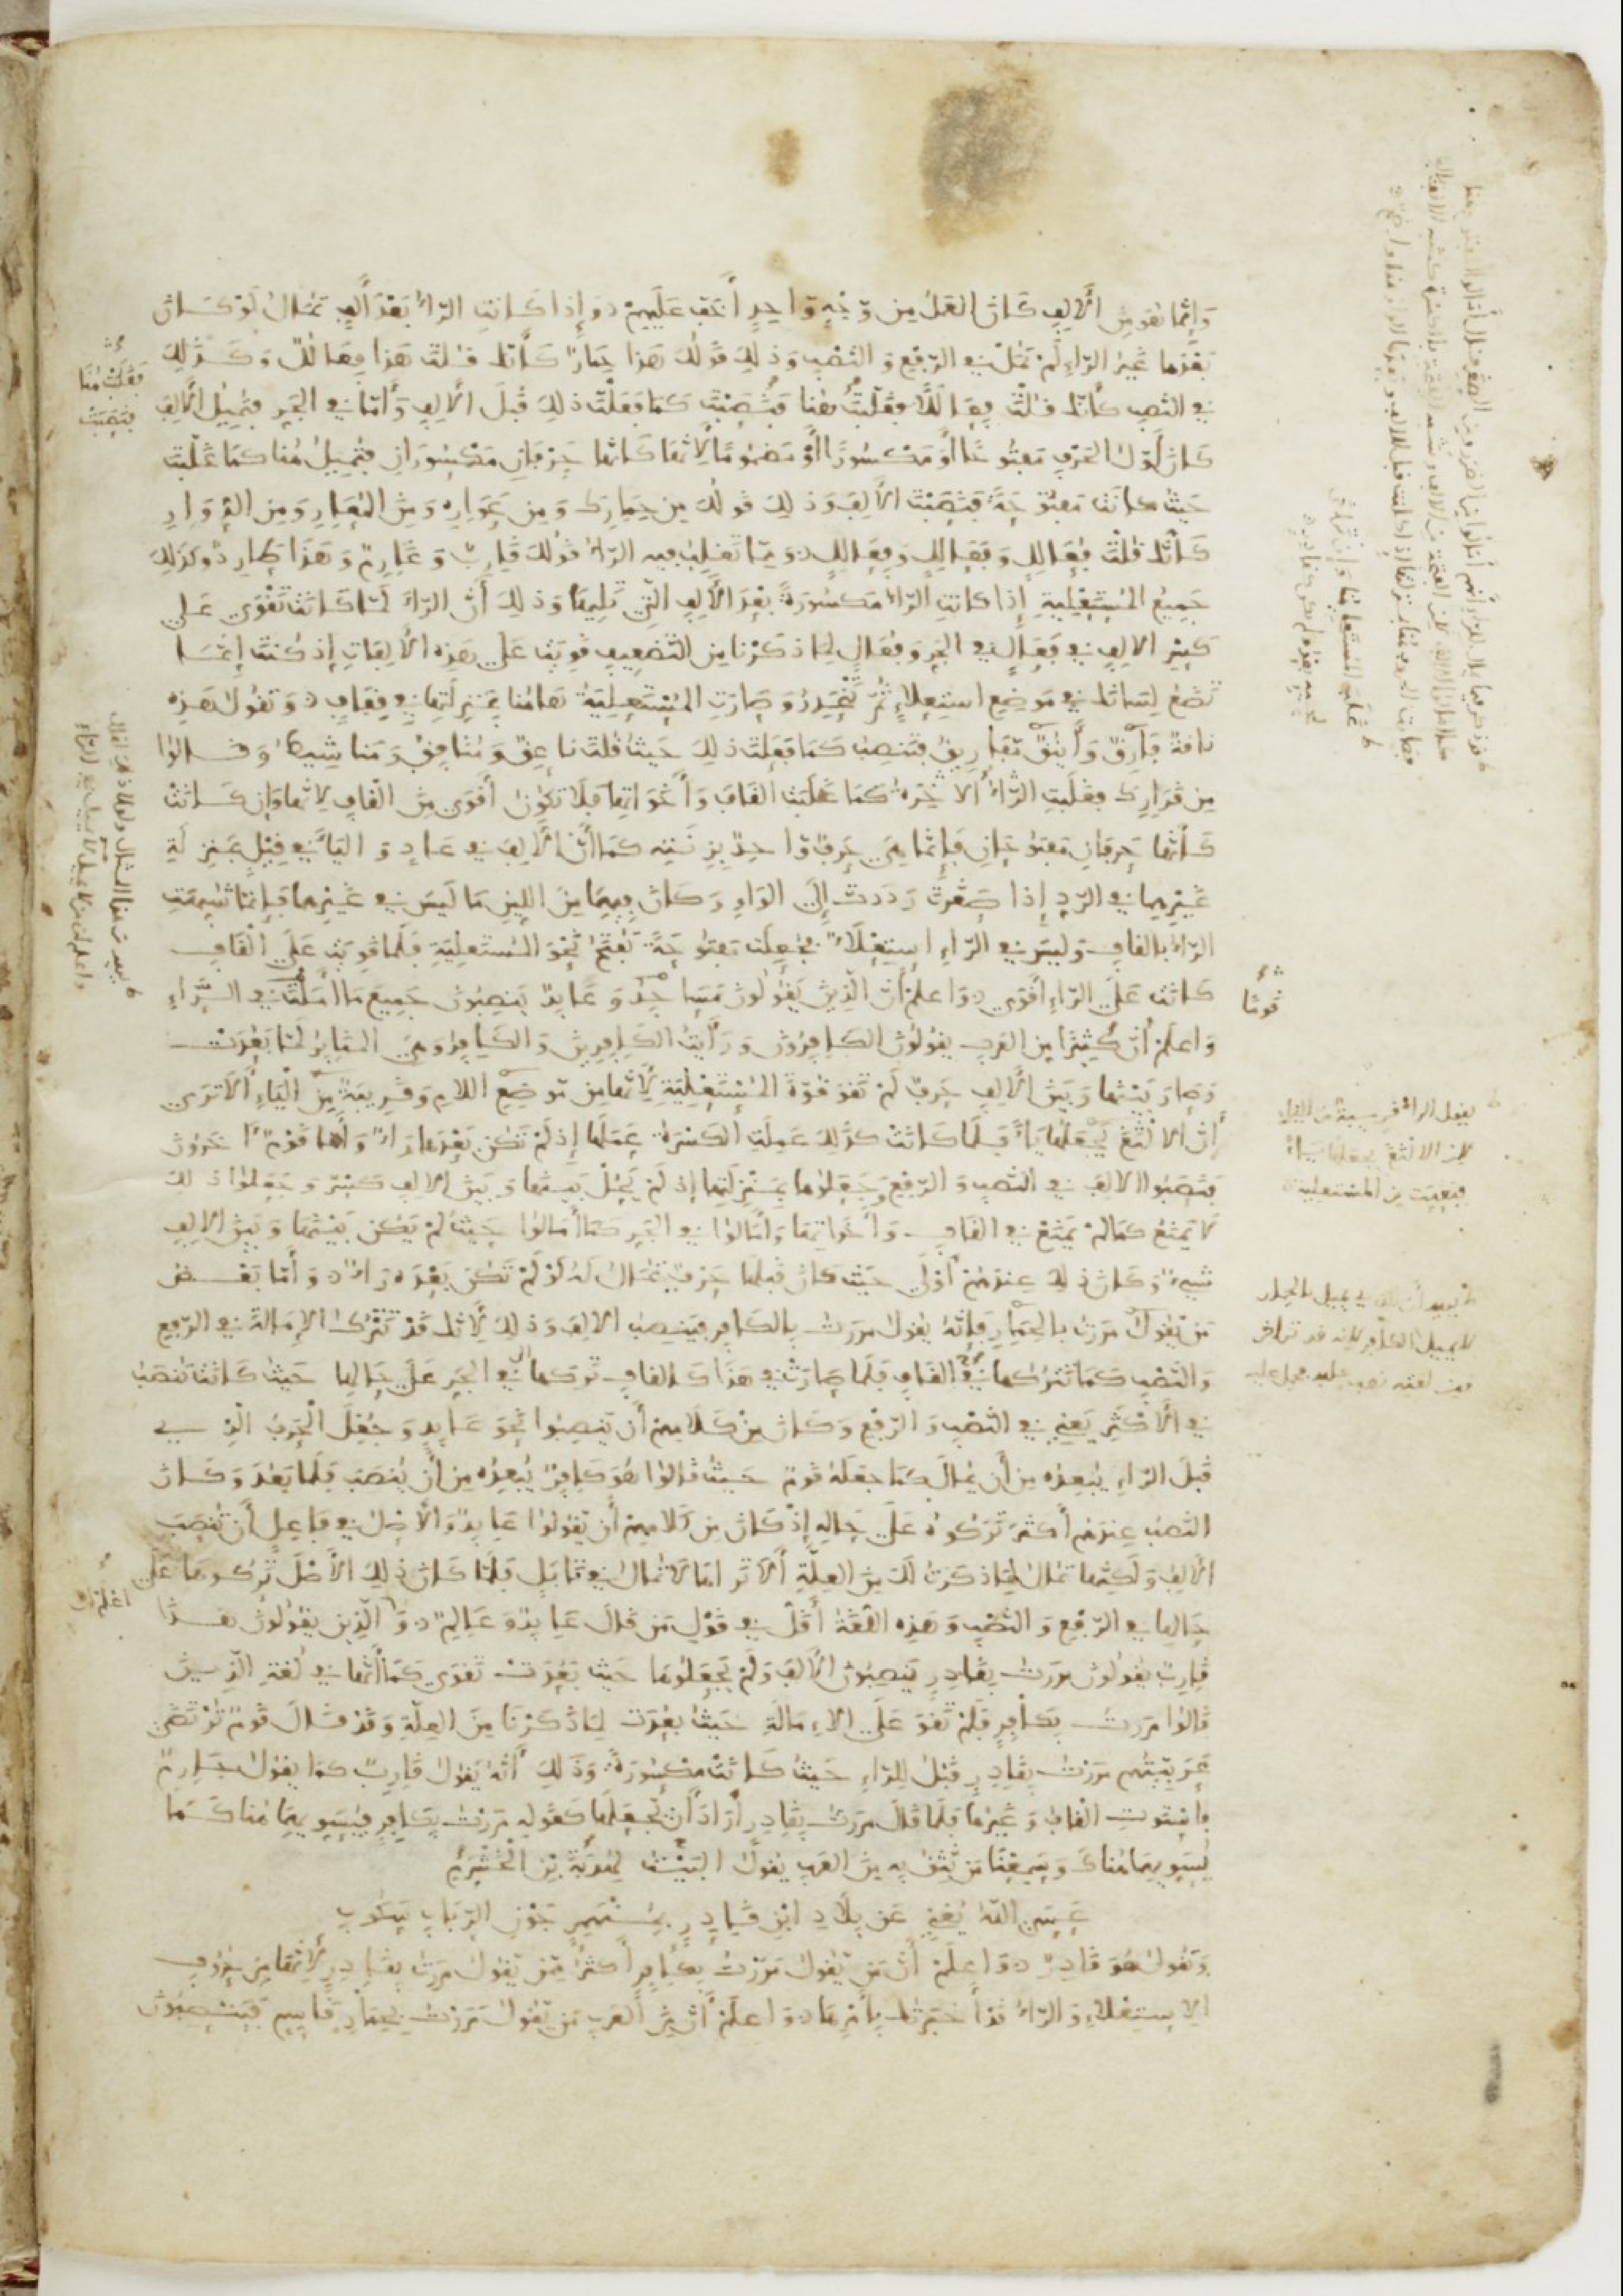 وَإِنَّمَا هُوَ مِنَ الأَلِفِ كَانَ العَمَلُ مِن وَجْهٍ وَاحِدٍ أَخَفَّ عَلَيهِمْ وَإِذَا كَانَتِ الرَّاءُ بَعْدَ أَلِفٍ تُمَالُ لَوْ كَانَ
بَعْدَهَا غَيْرُ الرَّاءِ لَمْ تُمَلْ فِي الرَّفْعِ وَالنَّصْبِ وَذَلِكَ قَولُكَ هَذَا حِمَارٌ كَأَنَّكَ قُلْتَ هَذَا فِعَالُلٌ وَكَذَلِكَ
فِي النَّصْبِ كَأَنَّكَ قُلْتَ فِعَالَلًا فَغَلَبَتْ هُنَا فَنُصِبَتْ كَمَا فَعَلْتَ ذَلِكَ قَبْلَ الأَلِفِ وَأَمَّا فِي الجَرِّ فَتُمِيلُ الأَلِفَ
كَانَ أَوَّلُ الحَرْفِ مَفْتُوحًا أَوْ مَكْسُورًا أَوْ مَضْمُومًا لِأَنَّهَا كَأَنَّهَا حَرْفَانِ مَكْسُورَانِ فَتُمِيلُ هُنَا كَمَا غَلَبَتْ
حَيْثُ كَانَتْ مَفْتُوحَةً فَنَصَبَتِ الأَلِفَ وَذَلِكَ قَولُكَ مِن حِمَارِكَ وَمِن عَوَارِهِ وَمِنَ المُعَارِ وَمِنَ الدُّوَارِ
كَأَنَّكَ قُلْتَ فُعَالِلٍ وَفَعَالِلٍ وَفِعَالِلٍ وَمِمَّا تَغْلِبُ فِيهِ الرَّاءُ قَولُكَ قَارِبٌ وَغَارِمٌ وَهَذَا طَارِدٌ وَكَذَلِكَ
جَمِيعُ المُسْتَعْلِيَةِ إِذَا كَانَتِ الرَّاءُ مَكْسُورَةً بَعْدَ الأَلِفِ الَّتِي تَلِيهَا وَذَلِكَ أَنَّ الرَّاءَ لَمَّا كَانَتْ تَقْوَى عَلَى
كَسْرِ الأَلِفِ فِي فَعَالٍ فِي الجَرِّ وَفُعَالٍ لِمَا ذَكَرْنَا مِنَ التَّضْعِيفِ قَوِيَتْ عَلَى هَذِهِ الأَلِفَاتِ إِذ كُنْتَ إِنَّمَا
تَضَعُ لِسَانَكَ فِي مَوضِعِ اسْتِعْلَاءٍ ثُمَّ تَنْحَدِرُ وَصَارَتِ المُسْتَعْلِيَةُ هَاهُنَا بِمَنْزِلَتِهَا فِي قِفَافٍ وَتَقُولُ هَذِهِ
نَاقَةٌ فَارِقٌ وَأَيْنُقٌ مَفَارِيقُ فَتَنْصِبُ كَمَا فَعَلْتَ ذَلِكَ حَيْثُ قُلْتَ نَاعِقٌ وَمُنَافِقٌ وَمَنَاشِيطُ وَقَالُوا
مِن قَرَارِكَ فَغَلَبَتِ الرَّاءُ الآخِرَةُ كَمَا غَلَبَتِ القَافَ وَأَخَوَاتِهَا فَلَا تَكُونُ أَقْوَى مِنَ القَافِ لِأَنَّهَا وَإِن كَانَتْ
كَأَنَّهَا حَرْفَانِ مَفْتُوحَانِ فَإِنَّمَا هِيَ حَرْفٌ وَاحِدٌ بِزِنَتِهِ كَمَا أَنَّ الأَلِفَ فِي عَادٍ وَاليَاءَ فِي قِيلٍ بِمَنْزِلَةِ
غَيْرِهِمَا فِي الرَّدِّ إِذَا صَغَّرْتَ رَدَدْتَ إِلَى الوَاوِ وَكَانَ فِيهِمَا مِنَ اللِّينِ مَا لَيْسَ فِي غَيْرِهِمَا فَإِنَّمَا شُبِّهَتِ
الرَّاءُ بِالقَافِ وَلَيْسَ فِي الرَّاءِ اسْتِعْلَاءٌ فَجُعِلَتْ مَفْتُوحَةً تَفْتَحُ نَحْوَ المُسْتَعْلِيَةِ فَلَمَّا قَوِيَتْ عَلَى القَافِ
كَانَتْ عَلَى الرَّاءِ أَقْوَى وَاعْلَمْ أَنَّ الَّذِينَ يَقُولُونَ مَسَاجِدُ وَعَابِدٌ يَنْصِبُونَ جَمِيعَ مَا أَمَلْتَ فِي الرَّاءِ
وَاعْلَمْ أَنَّ كَثِيرًا مِنَ العَرَبِ يَقُولُونَ الكَافِرُونَ وَرَأَيْتُ الكَافِرِينَ وَالكَافِرَ وَهِيَ المَنَابِرُ لَمَّا بَعُدَتْ
وَصَارَ بَيْنَهَا وَبَيْنَ الأَلِفِ حَرْفٌ لَمْ تَقْوَ قُوَّةَ المُسْتَعْلِيَةِ لِأَنَّهَا مِن مَوضِعِ اللَّامِ وَقَرِيبَةٌ مِنَ اليَاءِ أَلَا تَرَى
أَنَّ الأَلْثَغَ يَجْعَلُهَا يَاءً فَلَمَّا كَانَتْ كَذَلِكَ عَمِلَتِ الكَسْرَةُ عَمَلَهَا إِذ لَمْ تَكُن بَعْدَهَا رَاءٌ وَأَمَّا قَوْمٌ آخَرُونَ
فَنَصَبُوا الأَلِفَ فِي النَّصْبِ وَالرَّفْعِ وَجَعَلُوهَا بِمَنْزِلَتِهَا إِذ لَمْ يَحُلْ بَيْنَهَا وَبَيْنَ الأَلِفِ كَسْرٌ وَجَعَلُوا ذَلِكَ
لَا يَمْنَعُ كَمَا لَمْ يَمْنَعْ فِي القَافِ وَأَخَوَاتِهَا وَأَمَالُوا فِي الجَرِّ كَمَا أَمَالُوا حَيْثُ لَمْ يَكُن بَيْنَهَا وَبَيْنَ الأَلِفِ
شَيْءٌ وَكَانَ ذَلِكَ عِنْدَهُمْ أَوْلَى حَيْثُ كَانَ قَبْلَهَا حَرْفٌ تُمَالُ لَهُ لَوْ لَمْ تَكُن بَعْدَهُ رَاءٌ وَأَمَّا بَعْضُ
مَن يَقُولُ مَرَرْتُ بِالحِمَارِ فَإِنَّهُ يَقُولُ مَرَرْتُ بِالكَافِرِ فَيَنْصِبُ الأَلِفَ وَذَلِكَ لِأَنَّكَ قَدْ تَتْرُكُ الإِمَالَةَ فِي الرَّفْعِ
وَالنَّصْبِ كَمَا تَتْرُكُهَا فِي القَافِ فَلَمَّا صَارَتْ فِي هَذَا كَالقَافِ تَرَكَهَا فِي الجَرِّ عَلَى حَالِهَا حَيْثُ كَانَتْ تُنْصَبُ
فِي الأَكْثَرِ يَعْنِي فِي النَّصْبِ وَالرَّفْعِ وَكَانَ مِن كَلَامِهِمْ أَن يَنْصِبُوا نَحْوَ عَابِدٍ وَجُعِلَ الحَرْفُ الَّذِي
قَبْلَ الرَّاءِ يُبْعِدُهُ مِن أَن يُمَالَ كَمَا جَعَلَهُ قَومٌ حَيْثُ قَالُوا هُوَ كَافِرٌ يُبْعِدُهُ مِن أَن يُنْصَبَ فَلَمَّا بَعُدَ وَكَانَ
النَّصْبُ عِنْدَهُمْ أَكْثَرَ تَرَكُوهُ عَلَى حَالِهِ إِذْ كَانَ مِن كَلَامِهِمْ أَن يَقُولُوا عَابِدٌ وَالأَصْلُ فِي فَاعِلٍ أَن تُنْصَبَ
الأَلِفُ وَلَكِنَّهَا تُمَالُ لِمَا ذَكَرْتُ لَكَ مِنَ العِلَّةِ أَلَا تَرَاهَا لَا تُمَالُ فِي تَابَلٍ فَلَمَّا كَانَ ذَلِكَ الأَصْلَ تَرَكُوهَا عَلَى
حَالِهَا فِي الرَّفْعِ وَالنَّصْبِ وَهَذِهِ اللُّغَةُ أَقَلُّ فِي قَوْلِ مَن قَالَ عَابِدٌ وَعَالِمٌ وَالَّذِينَ يَقُولُونَ هَذَا
قَارِبٌ يَقُولُونَ مَرَرْتُ بِقَادِرٍ يَنْصِبُونَ الأَلِفَ وَلَمْ يَجْعَلُوهَا حَيْثُ بَعُدَتْ تَقْوَى كَمَا أَنَّهَا فِي لُغَةِ الَّذِينَ
قَالُوا مَرَرْتُ بِكَافِرٍ فَلَمْ تَقْوَ عَلَى الإِمَالَةِ حَيْثُ بَعُدَتْ لِمَا ذَكَرْنَا مِنَ العِلَّةِ وَقَدْ قَالَ قَومٌ تُرْتَضَى
عَرَبِيَّتُهُم مَرَرْتُ بِقَادِرٍ قَبْلُ لِلرَّاءِ حَيْثُ كَانَتْ مَكْسُورَةً وَذَلِكَ أَنَّهُ يَقُولُ قَارِبٌ كَمَا يَقُولُ جَارِمٌ
فَاسْتَوَتِ القَافُ وَغَيْرُهَا فَلَمَّا قَالَ مَرَرْتُ بِقَادِرٍ أَرَادَ أَن يَجْعَلَهَا كَقَولِهِ مَرَرْتُ بِكَافِرٍ فَيُسَوِّيهِمَا هُنَا كَمَا
يُسَوِّيهِمَا هُنَاكَ وَسَمِعْنَا مَن نَثِقُ بِهِ مِنَ العَرَبِ يَقُولُ البَيْتَ لِهُدْبَةَ بْنِ الخَشْرَمِ
عَسَى اللهُ يُغْنِي عَن بِلَادِ ابْنِ قَادِرٍ بِمُنْهَمِرٍ جَوْنِ الرَّبَابِ سَكُوبِ
وَتَقُولُ هُوَ قَادِرٌ وَاعْلَمْ أَنَّ مَن يَقُولُ مَرَرْتُ بِكَافِرٍ أَكْثَرُ مِمَّن يَقُولُ مَرَرْتُ بِقَادِرٍ لِأَنَّهَا مِن حُرُوفِ
الاِسْتِعْلَاءِ وَالرَّاءُ قَدْ أَخْبَرْتُكَ بِأَمْرِهَا وَاعْلَمْ أَنَّ مِنَ العَرَبِ مَن يَقُولُ مَرَرْتُ بِحِمَارِ قَاسِمٍ فَيَنْصِبُونَ
فَغَلَبَتْ هُنَا
فَنَصَبَتْ
قومًا
يقول الراء قريبة من الياء
لان الالثغ يجعلها ياء
فبعدت من المستعلية